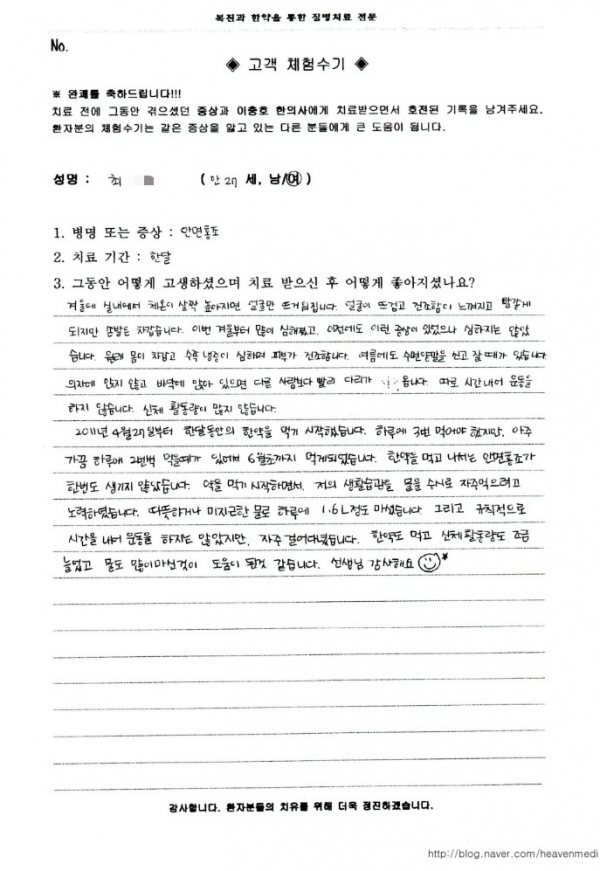 복진과 한약을 통한 질병치료 전문
No.
◈ 고객 체험수기 ◈
※ 완쾌를 축하드립니다!!!
치료 전에 그동안 겪으셨던 증상과 이충호 한의사에게 치료받으면서 호전된 기록을 남겨주세요.
환자분의 체험수기는 같은 증상을 앓고 있는 다른 분들에게 큰 도움이 됩니다.
성명 : 최 ( 만 27 세, 남/여 )
1. 병명 또는 증상 : 안면홍조
2. 치료 기간 : 한달
3. 그동안 어떻게 고생하셨으며 치료 받으신 후 어떻게 좋아지셨나요?
겨울에 실내에서 체온이 살짝 높아지면 얼굴만 뜨거워집니다. 얼굴이 뜨겁고 건조함이 느껴지고 빨갛게
되지만 손발은 차갑습니다. 이번 겨울부터 많이 심해졌고, 이전에도 이런 증상이 있었으나 심하지는 않았
습니다. 원래 몸이 차갑고 수족냉증이 심하며 피부가 건조합니다. 여름에도 수면양말을 신고 잘 때가 있습니다
의자에 앉지 않고 바닥에 앉아 있으면 다른 사람보다 빨리 다리가 옵니다. 따로 시간내어 운동을
하지 않습니다. 신체 활동량이 많지 않습니다.
2011년 4월27일부터 한달동안의 한약을 먹기 시작했습니다. 하루에 3번 먹어야 했지만, 아주
가끔 하루에 2번씩 먹을때가 있어서 6월초까지 먹게되었습니다. 한약을 먹고 나서는 안면홍조가
한번도 생기지 않았습니다. 약을 먹기 시작하면서, 저의 생활습관은 물을 수시로 자주먹으려고
노력하였습니다. 따뜻하거나 미지근한 물로 하루에 1.6L정도 마셨습니다. 그리고 규칙적으로
시간을 내어 운동을 하지는 않았지만, 자주 걸어다녔습니다. 한약도 먹고 신체활동량도 조금
늘었고 물도 많이마신것이 도움이 된것 같습니다. 선생님 감사해요
감사합니다. 환자분들의 치유를 위해 더욱 정진하겠습니다.
http://blog.naver.com/heavenmedi